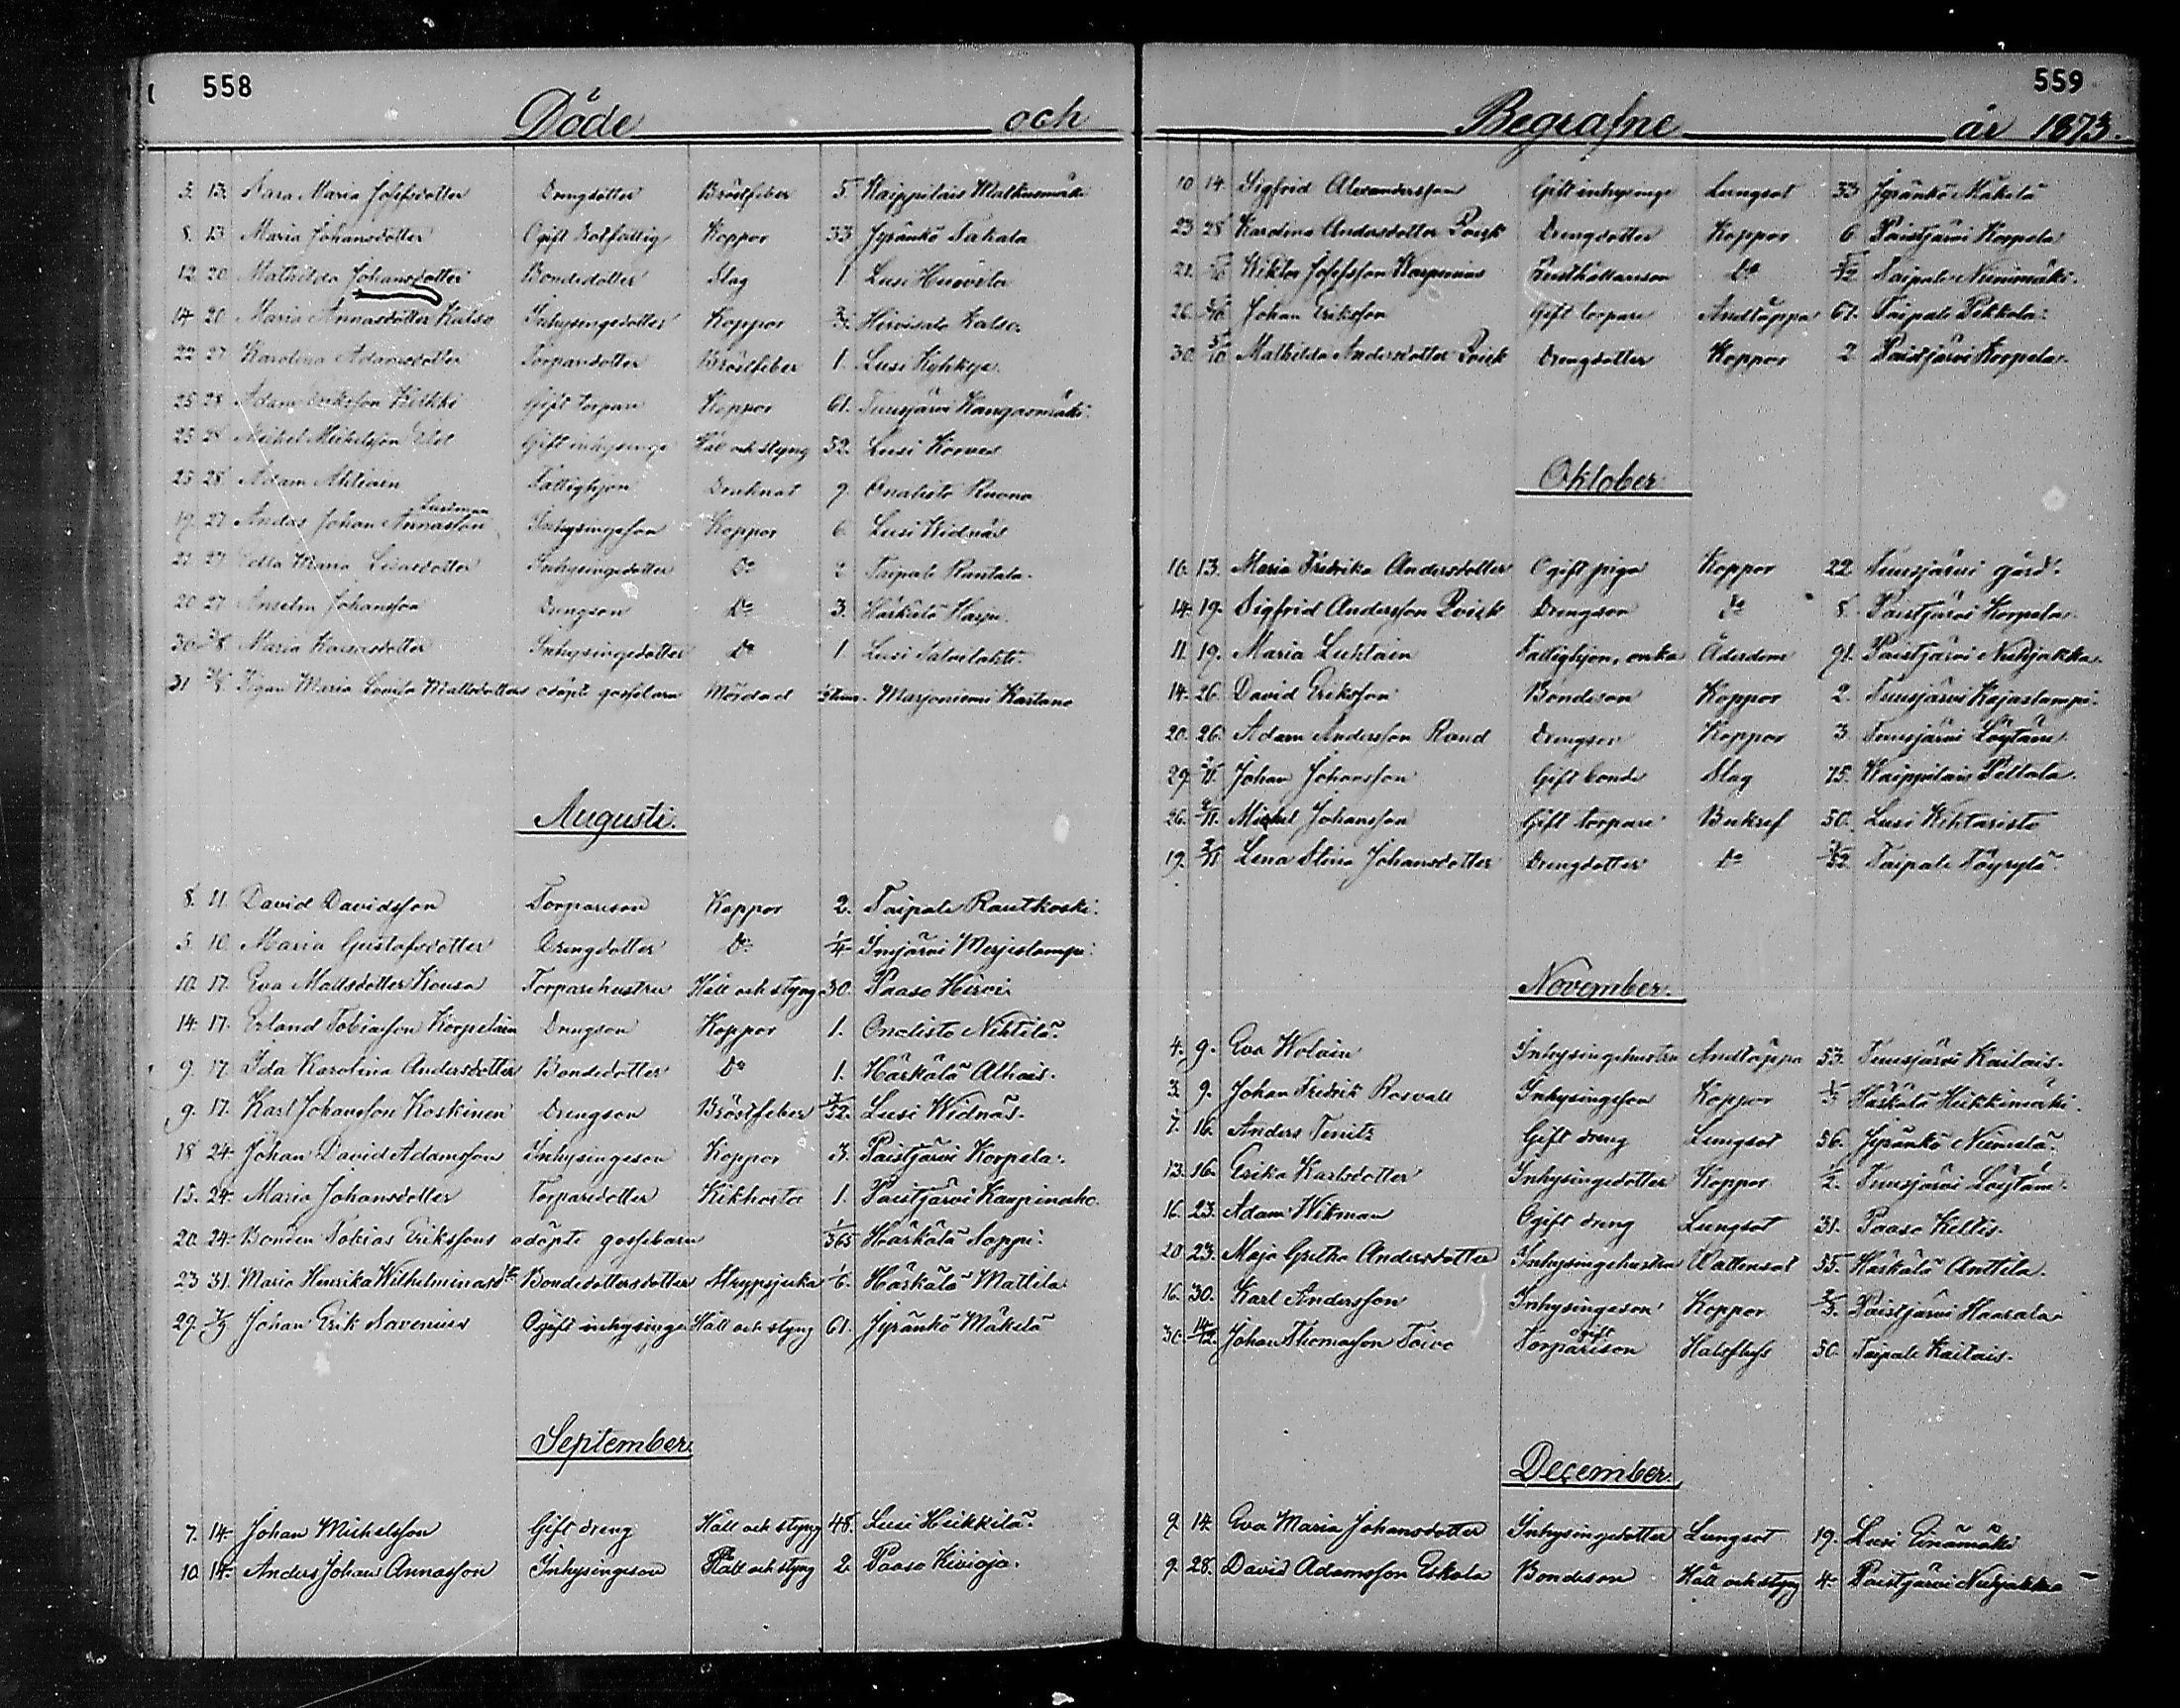 558
Döde och
3. 13. Maria Josefsdotter Drengdotter Bröstfeber 5. Kaippilais Matkusmäki
8. 13 Maria Johansdotter Ogift Rotfattig Koppor 33 Jyränkö Tahala
12. 20 Mathilda Johansdotter Bondedotter Slag 1. Lusi Huovila
14 20 Maria Annasdotter Kalso Inhysingsdotter Koppor Hirvisalo Kalso.
22 27 Karolina Adamsdotter Torpardotter Bröstfeber 1. Lusi Kyhkyä.
25 28 Adam Eriksson Gift torpare Koppor 61. Tuusjärvi Kangasmäki.
23 28 Michel Michelsson Gift inhysinge Håll och styng 52. Lusi Korvas
25 28 Adam Ahtiain Fattighjon 9. Onalisto Ruona
19. 27 Anders Johan Annasson Inhysingeson Koppor 6 Lusi Widnäs
21 27 Edla Maria Inhysingedotter Do 2 Taipale Rantala.
20 27 Anselm Johansson Drengson Do 3. Härkälä Harju.
30 Maria Inhysingedotter Do 1. Lusi Salvilahti.
31 Maria Lovisa Mattsdotters odöpt gossebarn Mördad Marjoniemi Kartano
Augusti.
8. 11. David Davidsson Torpareson Koppor 2. Taipale Rautkoski.
5. 10. Maria Gustafsdotter Drengdotter Do 1/4 Imjärvi Merjeslampi.
10. 17. Eva Mattsdotter Kousa Torparehustru Håll och styng 30. Paaso Hirvi.
14. 17. Erland Tobiasson Korpelain Drengson Koppor 1. Onalisto Nihtilä.
9. 17. Ida Karolina Andersdotter Bondedotter Do 1. Härkälä Alhais.
9. 17. Karl Johansson Koskinen Drengson Bröstfeber 3/52. Lusi Widnäs.
18 24. Johan David Adamsson Inhysingeson Koppor 3. Paistjärvi Korpela.
15. 24. Maria Johansdotter Torparedotter Kikhosta 1. Paistjärvi Kaupinaho.
20. 24. Bonden Tobias Erikssons odöpte gossebarn 1/365 Härkälä Soppi.
23 31. Maria Henrika Wilhelminasdr Bondedottersdotter Strypsjuka 1/6. Härkälä Mattila
29. 7/9 Johan Erik Savenius Ogift inhysinge Håll och styng 61. Jyränkö Mäkelä
September.
7. 14. Johan Michelsson Gift dreng Håll och styng 48. Lusi Heikkilä.
10. 14. Anders Johan Annasson Inhysingeson Håll och styng 2. Paaso Kivioja.
559
Begrafne år 1873.
10 14. Sigfrid Alexandersson Gift inhysinge Lungsot 33 Jyränkö Mäkelä
23 28 Karolina Andersdotter Poisk Drengdotter Koppor 6 Paistjärvi Korpela
21. Wiktor Josefsson Karpenius Rusthållareson Do Taipale Nunimäki.
26. Johan Eriksson Gift torpare Andtäppa 67. Taipale Pekkola.
30. 5/10 Mathilda Andersdotter Poisk Drengdotter Koppor 2 Paistjärvi Korpela.
Oktober
10. 13. Maria Fredrika Andersdotter Ogift piga Koppor 22 Tuusjärvi gård.
14. 19. Sigfrid Andersson Poisk Drengson Do 8. Paistjärvi Korpela.
11. 19. Maria Luhtain Fattighjon, enka Ålderdom 91. Paistjärvi Nuhjakka.
14. 26. David Eriksson Bondeson Koppor 2. Tuusjärvi Kojaslampi.
20. 26. Adam Andersson Rand Drengson Koppor 3. Tuusjärvi Löytäni
29. 2/11. Johan Johansson Gift bonde Slag 75. Kaippilais Peltola.
26. 2/11. Michel Johansson Gift torpare Bukref 50. Lusi Kihtaristo
19. 2/11 Lena Stina Johansdotter Drengdotter Do Taipale Töyrylä.
November.
4. 9. Eva Wolain Inhysingehustru Andtäppa 53. Tuusjärvi Kailais.
3. 9. Johan Fredrik Rosvall Inhysingeson Koppor Härkälä Heikkimäki.
7. 16. Anders Tenitz Gift dreng Lungsot 56. Jyränkö Numela.
13. 16. Erika Karlsdotter Inhysingedotter Koppor 1/2. Tuusjärvi Löytäni.
16. 23. Adam Wikman Ogift dreng Lungsot 31. Paaso Keltis.
20 23. Maja Gretha Andersdotter Inhysingehustru Wattensot 55. Härkälä Anttila.
16. 30. Karl Andersson Inhysingeson Koppor 2/3. Paistjärvi Haarala
30. 14/12. Johan Thomasson Toivo ogift Torpareson Halsfluss 50. Taipale Kailais.
December.
9 14. Eva Maria Johansdotter Inhysingedotter Lungsot 19. Lusi Einämäki
9. 28. David Adamsson Eskola Bondeson Håll och styng 4. Paistjärvi Nuhjakka